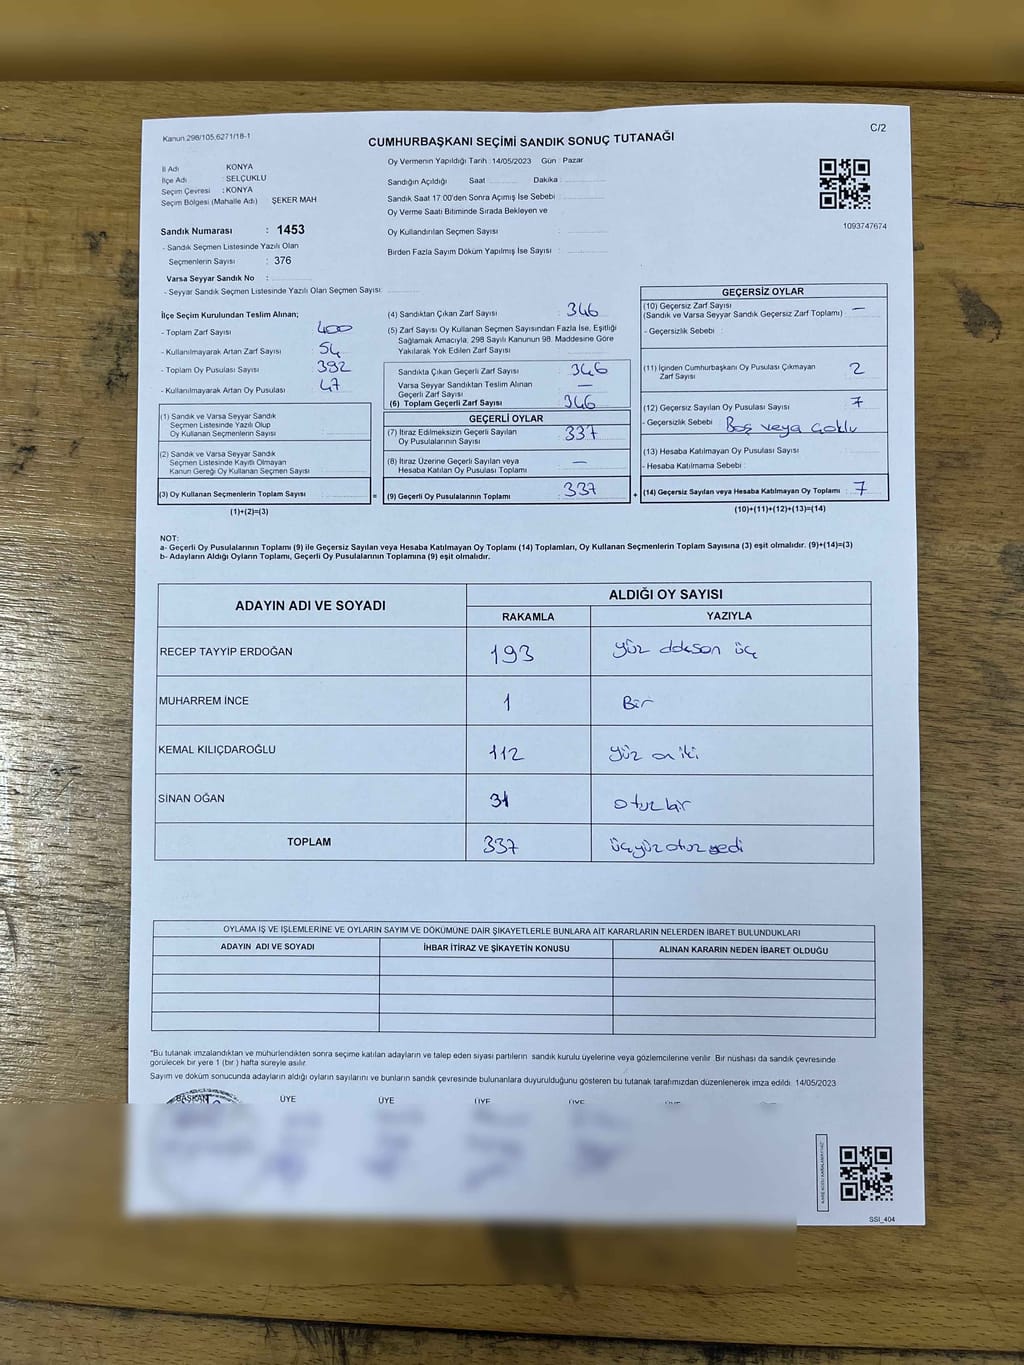 Kanun.298/105,6271/18-1
C/2
CUMHURBAŞKANI SEÇİMİ SANDIK SONUÇ TUTANAĞI
İl Adı : KONYA
İlçe Adı : SELÇUKLU
Seçim Çevresi : KONYA
Seçim Bölgesi (Mahalle Adı) ŞEKER MAH
Oy Vermenin Yapıldığı Tarih :14/05/2023 Gün : Pazar
Sandığın Açıldığı Saat Dakika :
Sandık Saat 17:00'den Sonra Açımış İse Sebebi :
Oy Verme Saati Bitiminde Sırada Bekleyen ve
Oy Kullandırılan Seçmen Sayısı :
Birden Fazla Sayım Döküm Yapılmış İse Sayısı :
1093747674
Sandık Numarası : 1453
- Sandık Seçmen Listesinde Yazılı Olan
Seçmenlerin Sayısı : 376
Varsa Seyyar Sandık No :
- Seyyar Sandık Seçmen Listesinde Yazılı Olan Seçmen Sayısı:
İlçe Seçim Kurulundan Teslim Alınan;
- Toplam Zarf Sayısı : 400
- Kullanılmayarak Artan Zarf Sayısı : 54
- Toplam Oy Pusulası Sayısı : 392
- Kullanılmayarak Artan Oy Pusulası : 47
(1) Sandık ve Varsa Seyyar Sandık
Seçmen Listesinde Yazılı Olup
Oy Kullanan Seçmenlerin Sayısı :
(2) Sandık ve Varsa Seyyar Sandık
Seçmen Listesinde Kayıtlı Olmayan
Kanun Gereği Oy Kullanan Seçmen Sayısı :
(3) Oy Kullanan Seçmenlerin Toplam Sayısı :
(1)+(2)=(3)
(4) Sandıktan Çıkan Zarf Sayısı : 346
(5) Zarf Sayısı Oy Kullanan Seçmen Sayısından Fazla İse, Eşitliği
Sağlamak Amacıyla, 298 Sayılı Kanunun 98. Maddesine Göre
Yakılarak Yok Edilen Zarf Sayısı :
Sandıkta Çıkan Geçerli Zarf Sayısı : 346
Varsa Seyyar Sandıktan Teslim Alınan
Geçerli Zarf Sayısı : —
(6) Toplam Geçerli Zarf Sayısı : 346
=
GEÇERLİ OYLAR
(7) İtiraz Edilmeksizin Geçerli Sayılan
Oy Pusulalarının Sayısı : 337
(8) İtiraz Üzerine Geçerli Sayılan veya
Hesaba Katılan Oy Pusulası Toplamı : —
(9) Geçerli Oy Pusulalarının Toplamı : 337
+
GEÇERSİZ OYLAR
(10) Geçersiz Zarf Sayısı
(Sandık ve Varsa Seyyar Sandık Geçersiz Zarf Toplamı) : —
- Geçersizlik Sebebi :
(11) İçinden Cumhurbaşkanı Oy Pusulası Çıkmayan
Zarf Sayısı : 2
(12) Geçersiz Sayılan Oy Pusulası Sayısı : 7
- Geçersizlik Sebebi : Boş veya çoklu
(13) Hesaba Katılmayan Oy Pusulası Sayısı :
- Hesaba Katılmama Sebebi :
(14) Geçersiz Sayılan veya Hesaba Katılmayan Oy Toplamı : 7
(10)+(11)+(12)+(13)=(14)
NOT:
a- Geçerli Oy Pusulalarının Toplamı (9) ile Geçersiz Sayılan veya Hesaba Katılmayan Oy Toplamı (14) Toplamları, Oy Kullanan Seçmenlerin Toplam Sayısına (3) eşit olmalıdır. (9)+(14)=(3)
b- Adayların Aldığı Oyların Toplamı, Geçerli Oy Pusulalarının Toplamına (9) eşit olmalıdır.
ADAYIN ADI VE SOYADI ALDIĞI OY SAYISI
RAKAMLA YAZIYLA
RECEP TAYYIP ERDOĞAN 193 yüz doksan üç
MUHARREM İNCE 1 Bir
KEMAL KILIÇDAROĞLU 112 yüz on iki
SİNAN OĞAN 31 otuz bir
TOPLAM 337 üçyüz otuz yedi
OYLAMA İŞ VE İŞLEMLERİNE VE OYLARIN SAYIM VE DÖKÜMÜNE DAİR ŞİKAYETLERLE BUNLARA AİT KARARLARIN NELERDEN İBARET BULUNDUKLARI
ADAYIN ADI VE SOYADI İHBAR İTİRAZ VE ŞİKAYETİN KONUSU ALINAN KARARIN NEDEN İBARET OLDUĞU
"Bu tutanak imzalandıktan ve mühürlendikten sonra seçime katılan adayların ve talep eden siyasi partilerin sandık kurulu üyelerine veya gözlemcilerine verilir. Bir nüshası da sandık çevresinde
görülecek bir yere 1 (bir) hafta süreyle asılır.
Sayım ve döküm sonucunda adayların aldığı oyların sayılarını ve bunların sandık çevresinde bulunanlara duyurulduğunu gösteren bu tutanak tarafımızdan düzenlenerek imza edildi. 14/05/2023
BAŞKAN ÜYE ÜYE ÜYE ÜYE
SSI_404